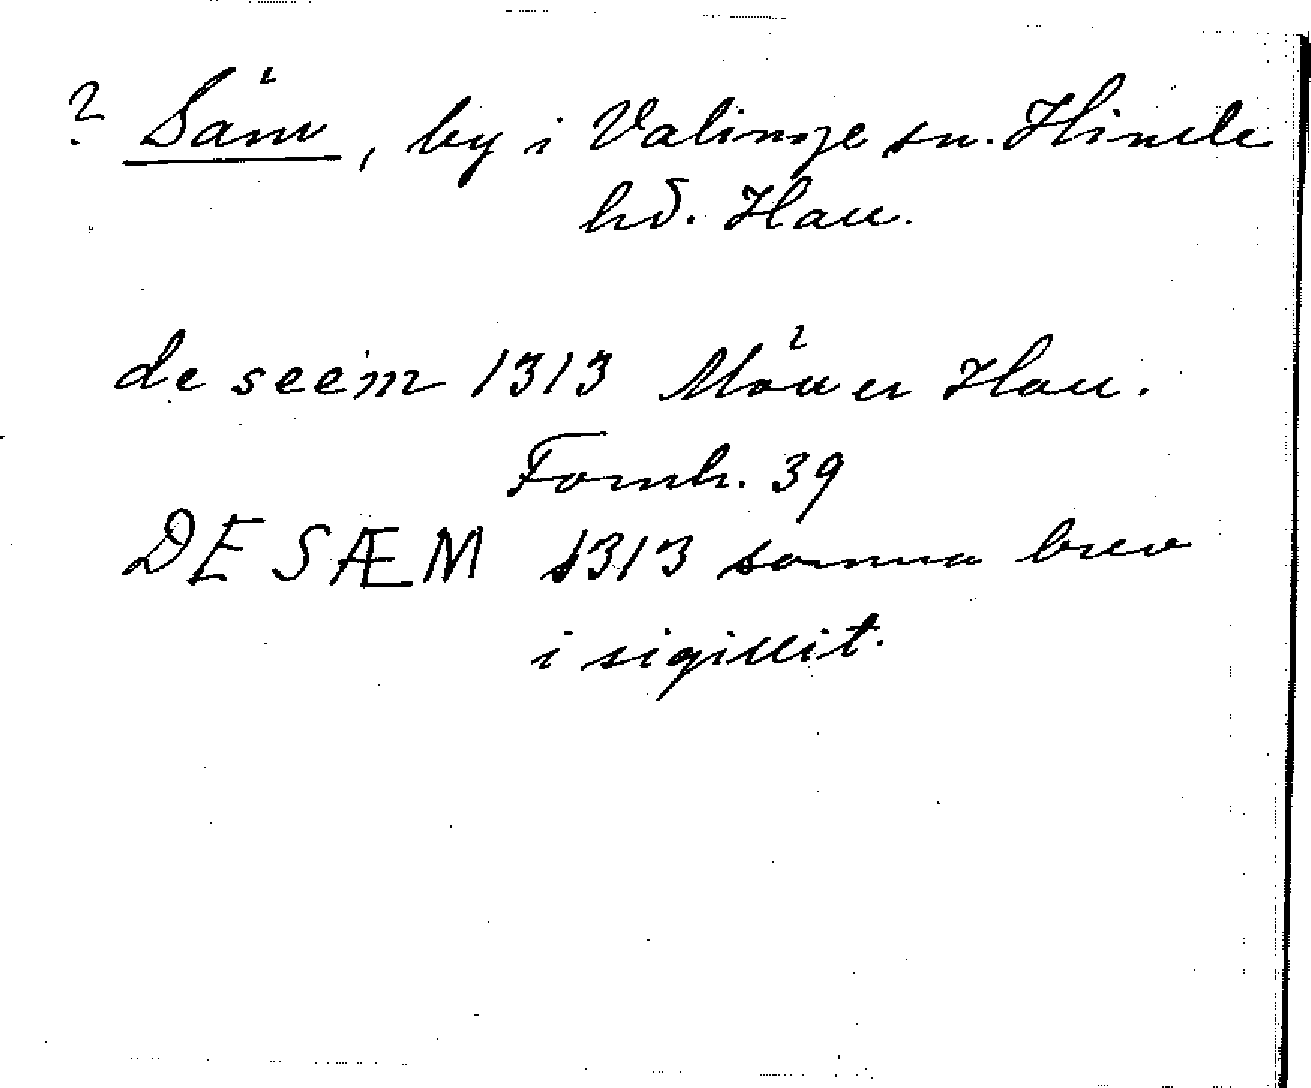 ? Säm, by i Valinge sn. Himle
hd. Hall.
de seem 1313 Möller Hall.
Fornh. 39
DE SÆM 1313 samma brev
i sigillit.